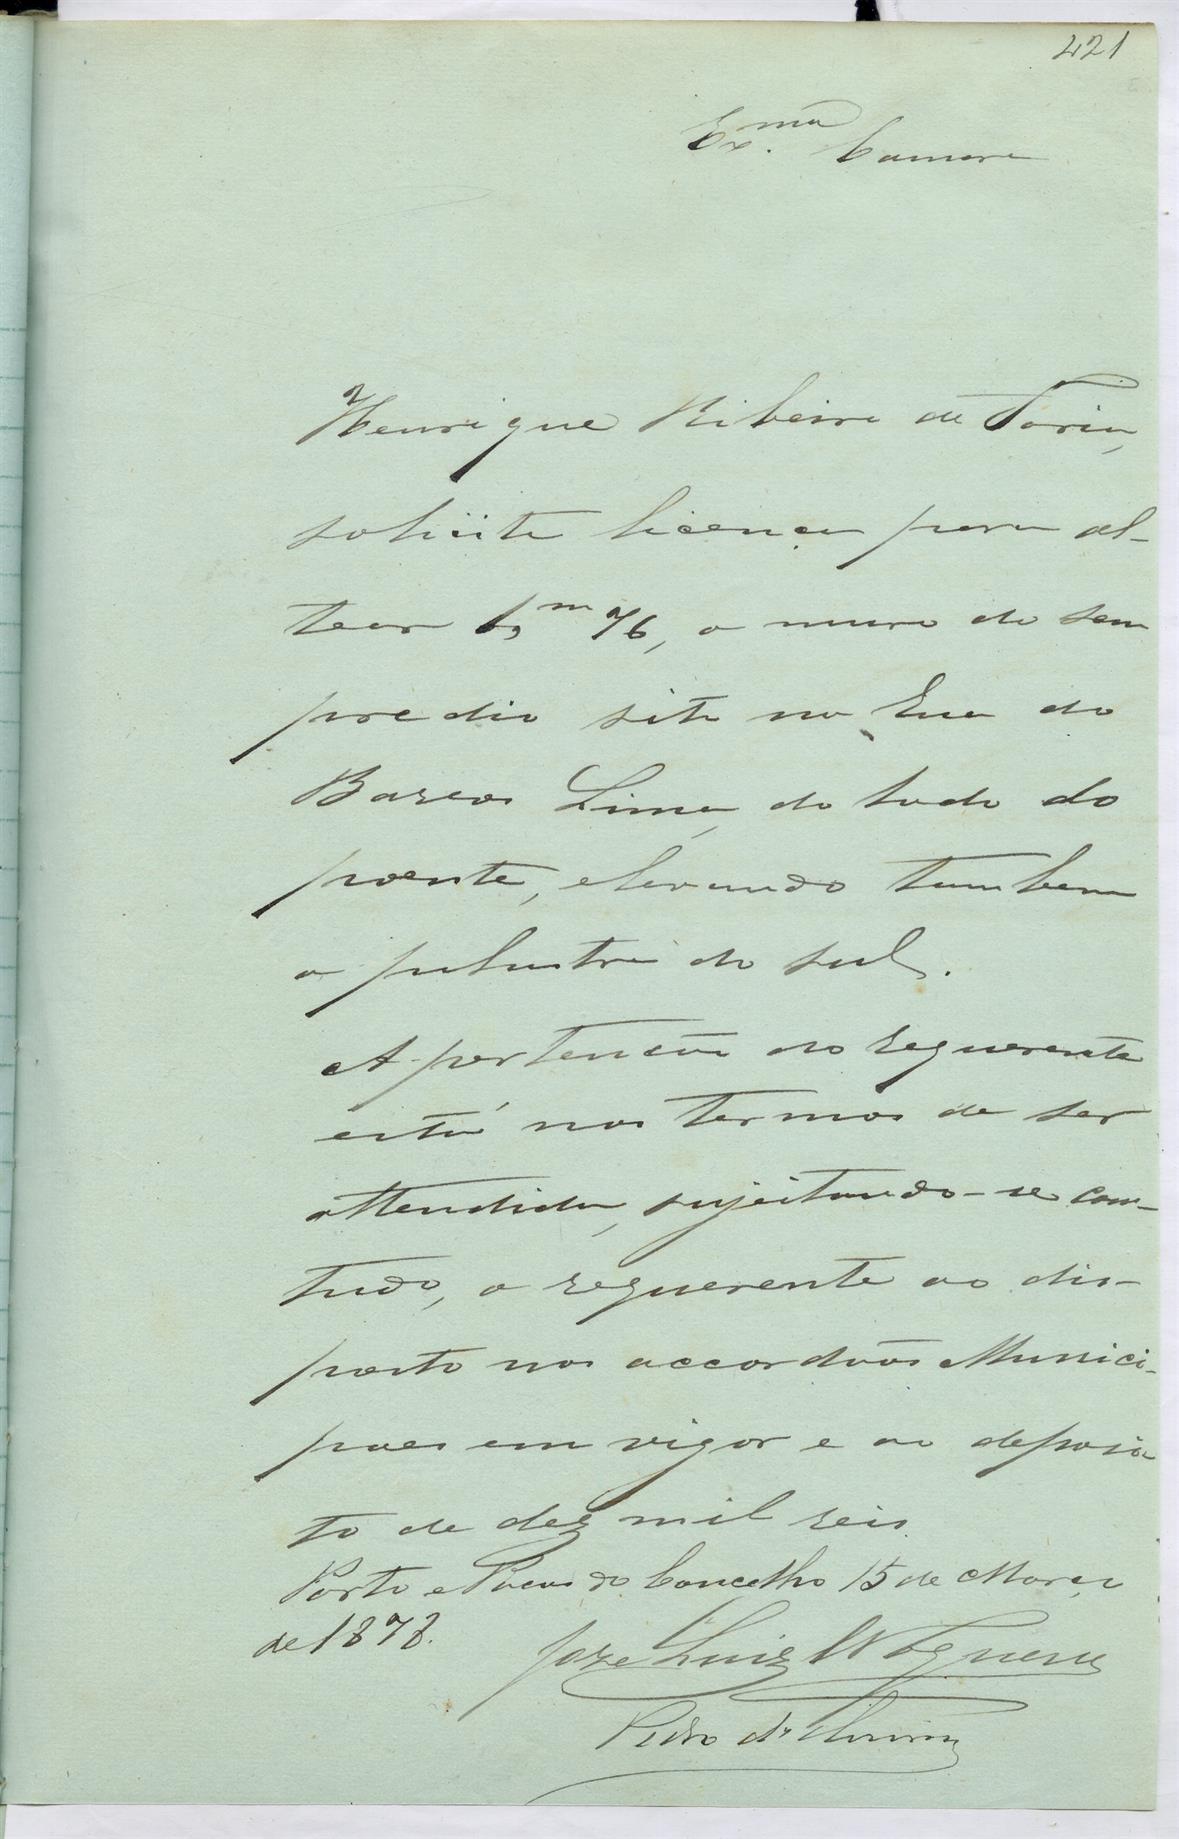 421
Ex.ma Camara
Henrique Ribeiro de Faria,
solicita licença para al-
tear 1,m76, o muro do seu
predio sito na Rua do
Barão Lima, do lado do
poente, elevando tambem
a pilastra do sul.
A pertenção do requerente
está nos termos de ser
attendida, sujeitando-se com-
tudo, o requerente ao dis-
posto nos accordãos Munici-
paes em vigor e ao deposi-
to de dez mil reis.
Porto e Paços do Concelho 15 de Março
de 1878.
Joze Luiz Nogueira
Pedro d'Oliveira